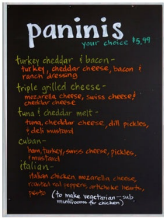 paninis
your choice $5.99
turkey cheddar & bacon-
turkey, cheddar cheese, bacon &
ranch dressing
triple grilled cheese-
mozzarella cheese, swiss cheese &
cheddar cheese
tuna & cheddar melt-
tuna, cheddar cheese, dill pickles,
& deli mustard
cuban-
ham, turkey, swiss cheese, pickles,
& mustard
italian-
italian chicken, mozzarella cheese,
roasted red peppers, artichoke hearts,
pesto
(to make vegetarian- sub
mushrooms for chicken)